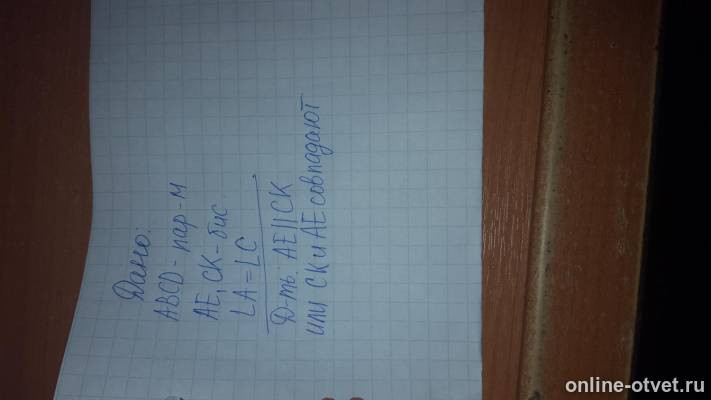 Дано:
ABCD - пар-м
AE, CK - бис.
∠A = ∠C
Д-ть: AE || CK
или CK и AE совпадают
online-otvet.ru